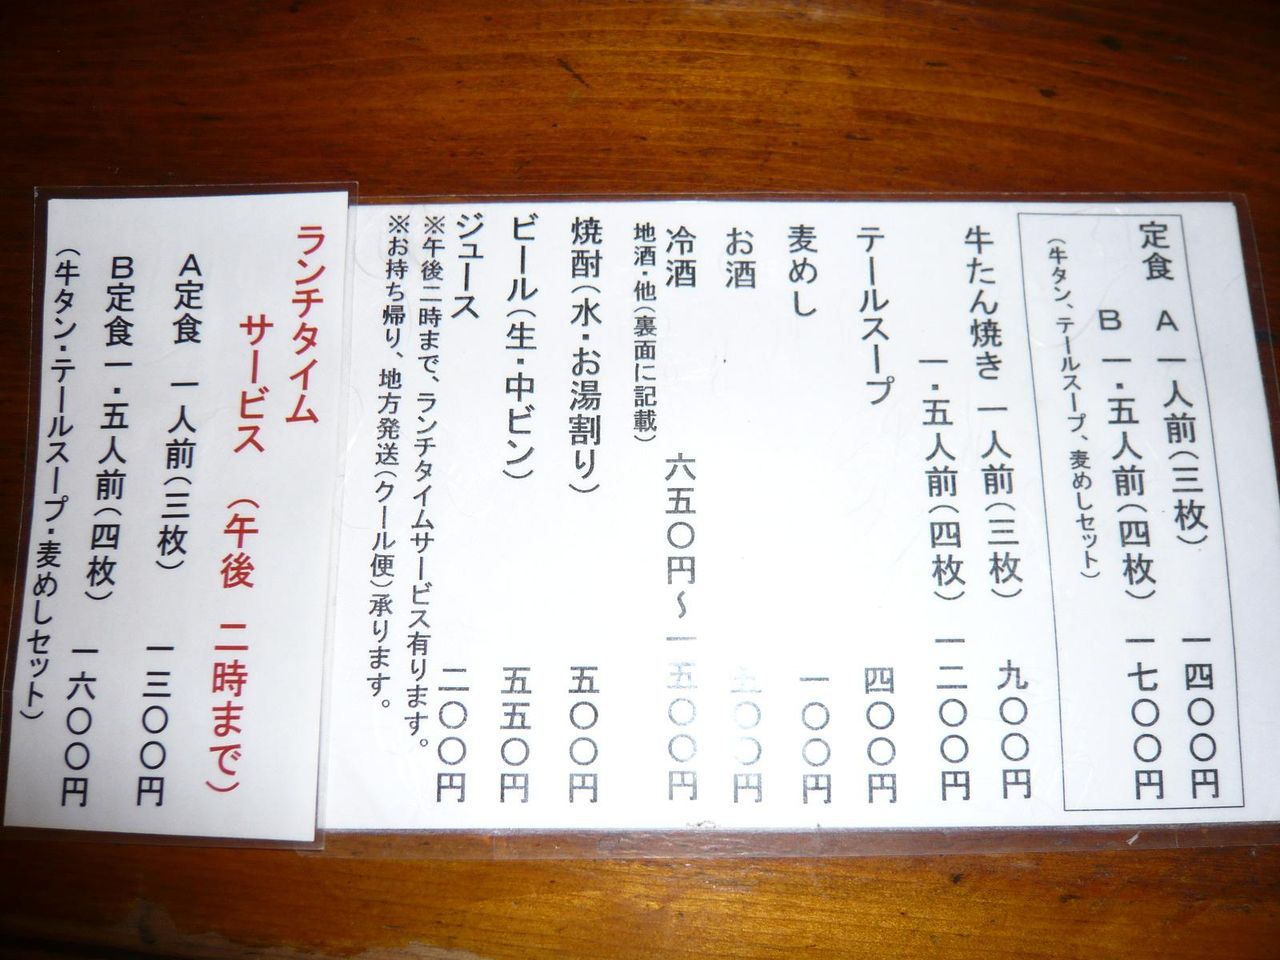 定食 A 一人前(三枚) 一四〇〇円
B 一・五人前(四枚) 一七〇〇円
(牛タン、テールスープ、麦めしセット)
牛たん焼き 一人前(三枚) 九〇〇円
一・五人前(四枚) 一二〇〇円
テールスープ 四〇〇円
麦めし 一〇〇円
お酒 五〇〇円
冷酒 六五〇円~一五〇〇円
地酒・他(裏面に記載)
焼酎(水・お湯割り) 五〇〇円
ビール(生・中ビン) 五五〇円
ジュース 二〇〇円
※午後二時まで、ランチタイムサービス有ります。
※お持ち帰り、地方発送(クール便)承ります。
ランチタイム
サービス (午後 二時まで)
A定食 一人前(三枚) 一三〇〇円
B定食 一・五人前(四枚) 一六〇〇円
(牛タン・テールスープ・麦めしセット)